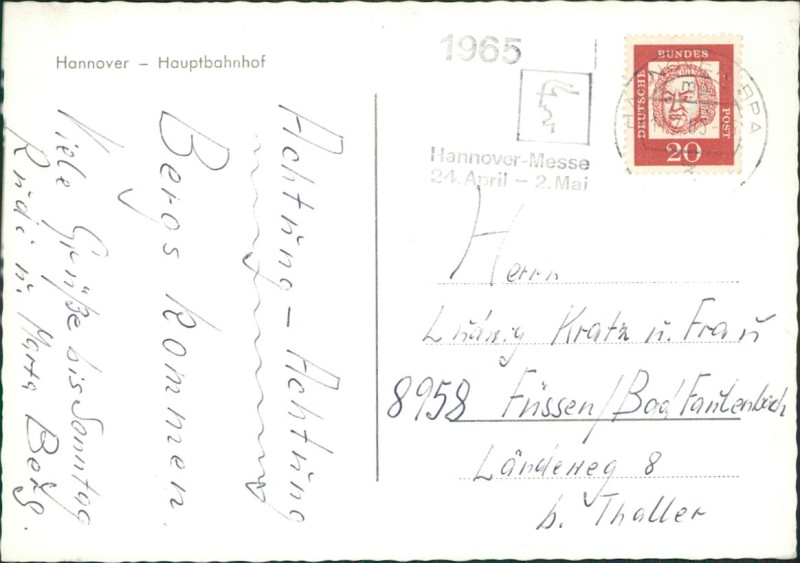 Hannover – Hauptbahnhof
Achtung – Achtung
Bergs kommen.
Viele Grüße bis Sonntag
Rudi u. Marta Berg.
1965
Hannover-Messe
24. April – 2. Mai
DEUTSCHE BUNDESPOST
20
Herrn
Ludwig Kratz u. Frau
8958 Füssen/Bad Faulenbach
Ländeweg 8
b. Thaller